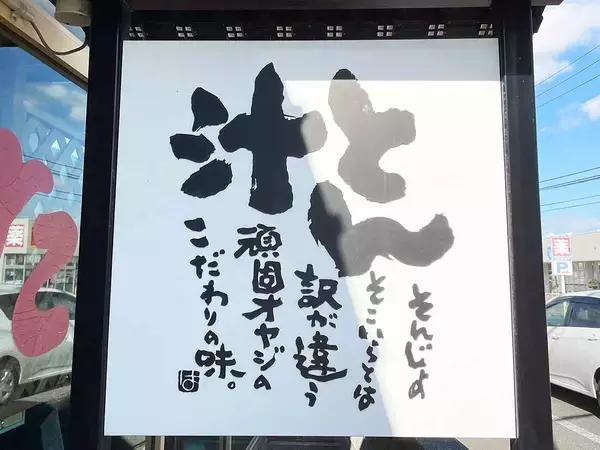 とん
汁
そんじょ
そこいらとは
訳が違う
頑固オヤジの
こだわりの味。
薬
薬
P